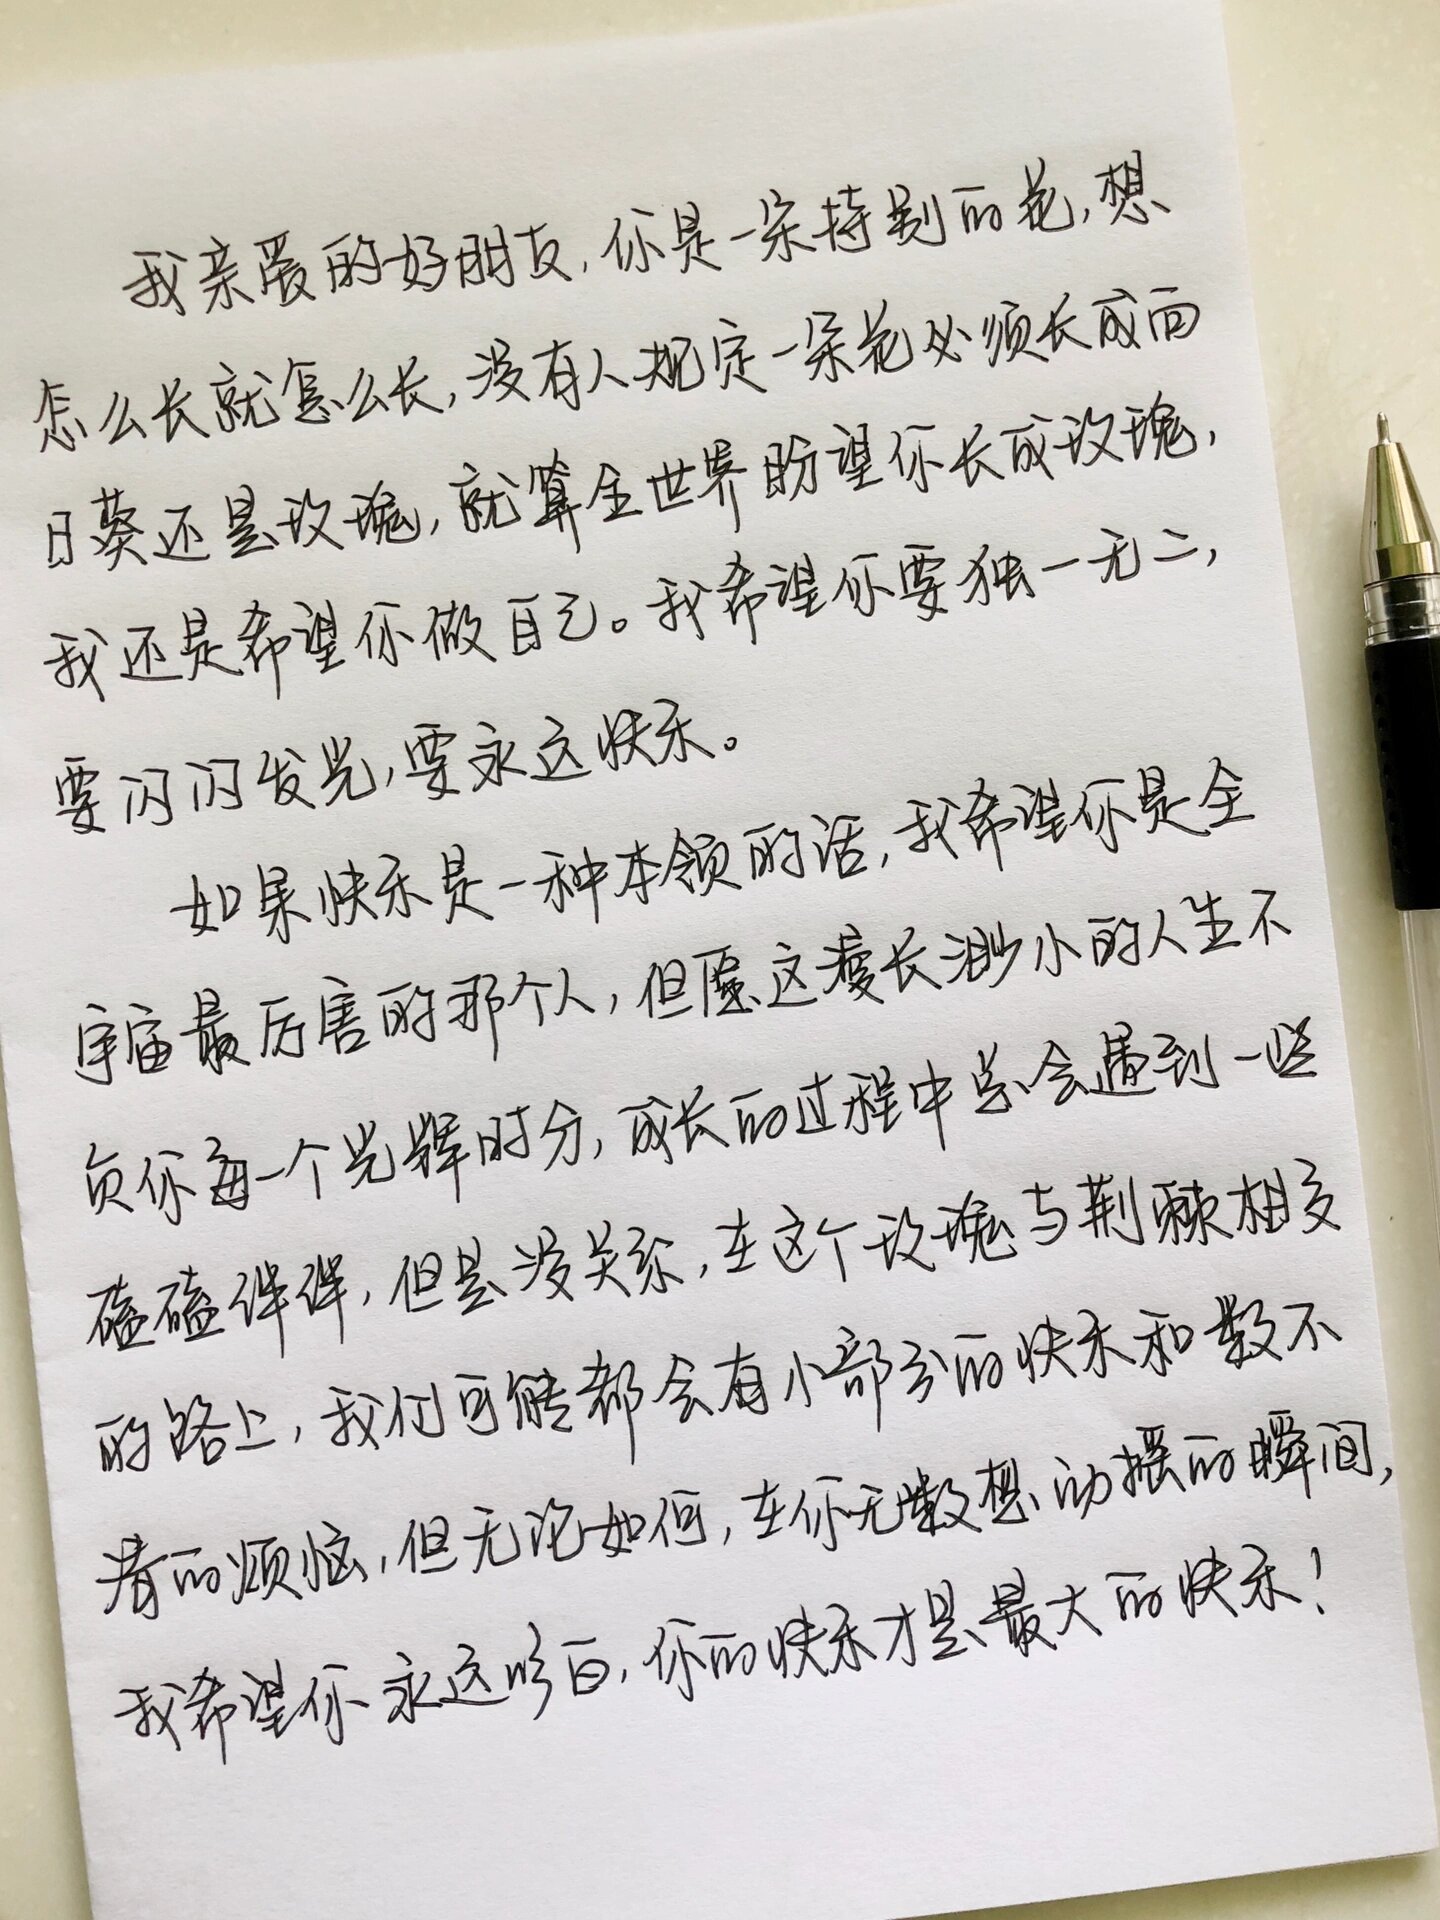 我亲爱的好朋友,你是一朵特别的花,想
怎么长就怎么长,没有人规定一朵花必须长成向
日葵还是玫瑰,就算全世界盼望你长成玫瑰,
我还是希望你做自己。我希望你要独一无二,
要闪闪发光,要永远快乐。
如果快乐是一种本领的话,我希望你是全
宇宙最厉害的那个人,但愿这漫长渺小的人生不
负你每一个光辉时分,成长的过程中总会遇到一些
磕磕绊绊,但是没关系,在这个玫瑰与荆棘相交
的路上,我们可能都会有小部分的快乐和数不
清的烦恼,但无论如何,在你无数想动摇的瞬间,
我希望你永远明白,你的快乐才是最大的快乐!